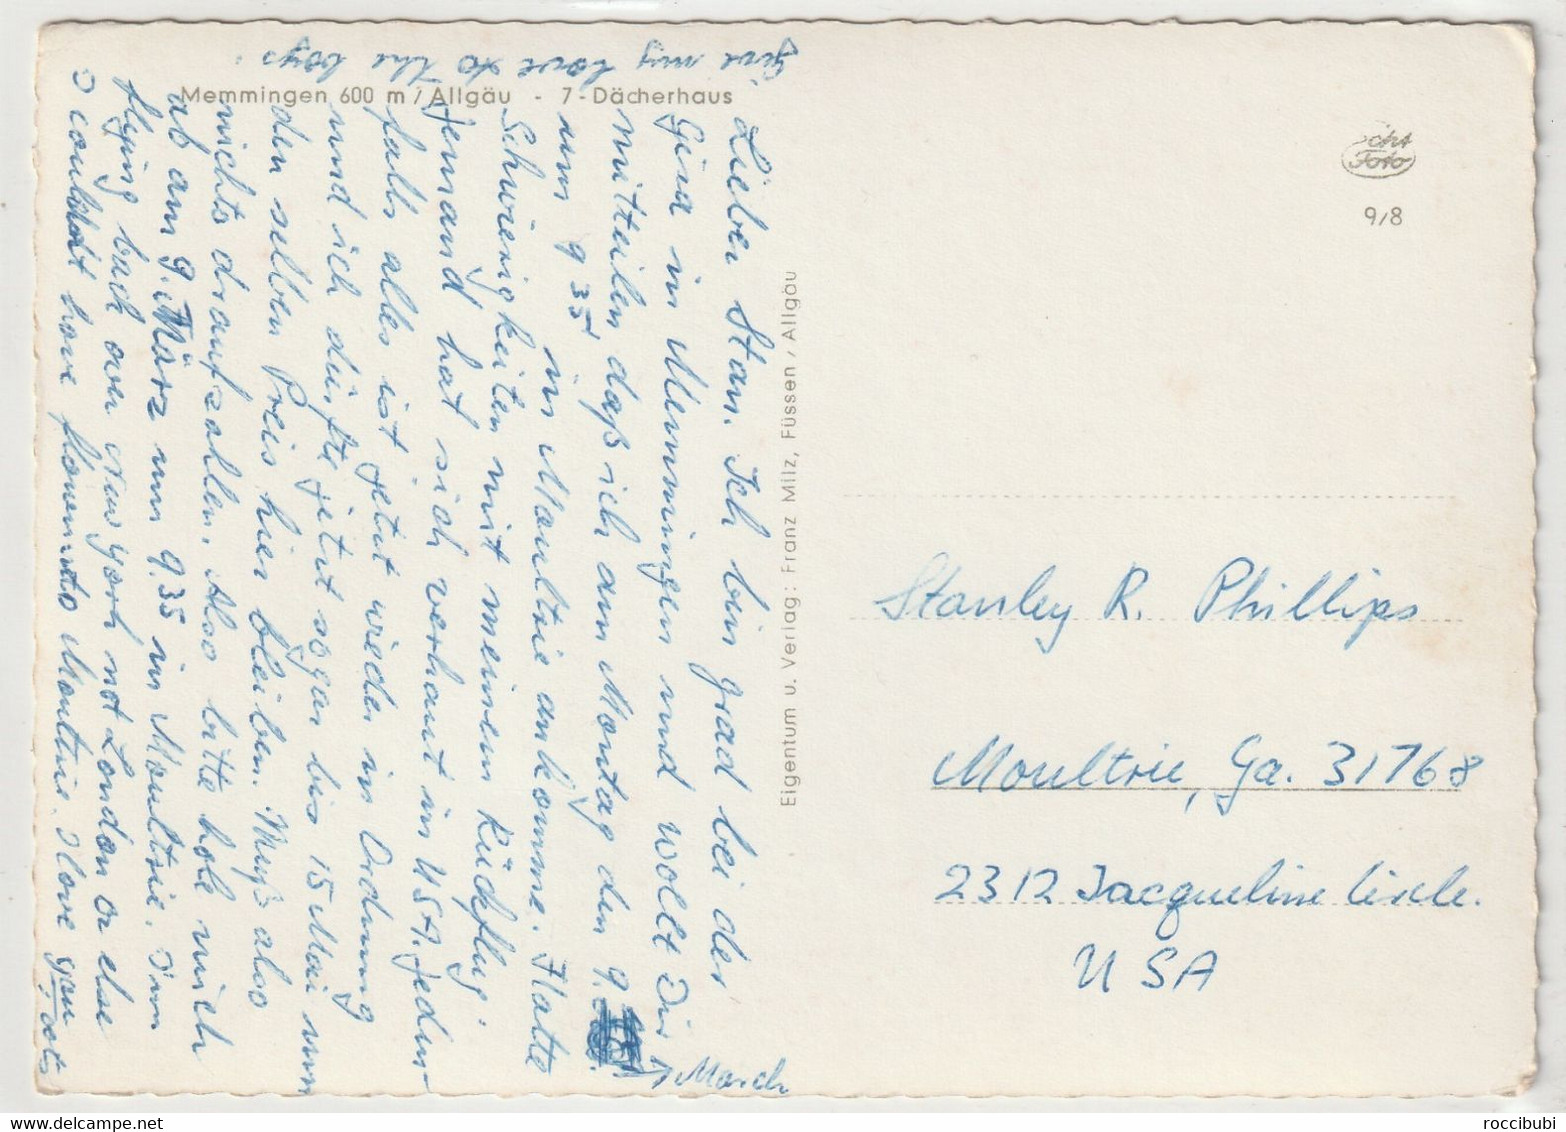 Memmingen 600 m / Allgäu - 7-Dächerhaus
Lieber Stan. Ich bin grad bei der
Gina in Memmingen und wollt Dir
mitteilen daß ich am Montag den 9.
March
um 9 35 in Moultrie ankomme. Hatte
Schwierigkeiten mit meinem Rückflug.
Jemand hat sich verhaut in USA. Jeden-
falls alles ist jetzt wieder in Ordnung
und ich dürfte jetzt sogar bis 15 Mai um
den selben Preis hier bleiben. Muß also
nichts draufzahlen. Also bitte hole mich
ab am 9. März um 9.35 in Moultrie. I'm
flying back over New York not London or else
I coulddt have flown to Moultrie. I love you
lots
Give my love to the boys.
Eigentum u. Verlag: Franz Milz, Füssen / Allgäu
Echt
Foto
9/8
Stanley R. Phillips
Moultrie, Ga. 31768
2312 Jacqueline Circle.
USA
roccibubi